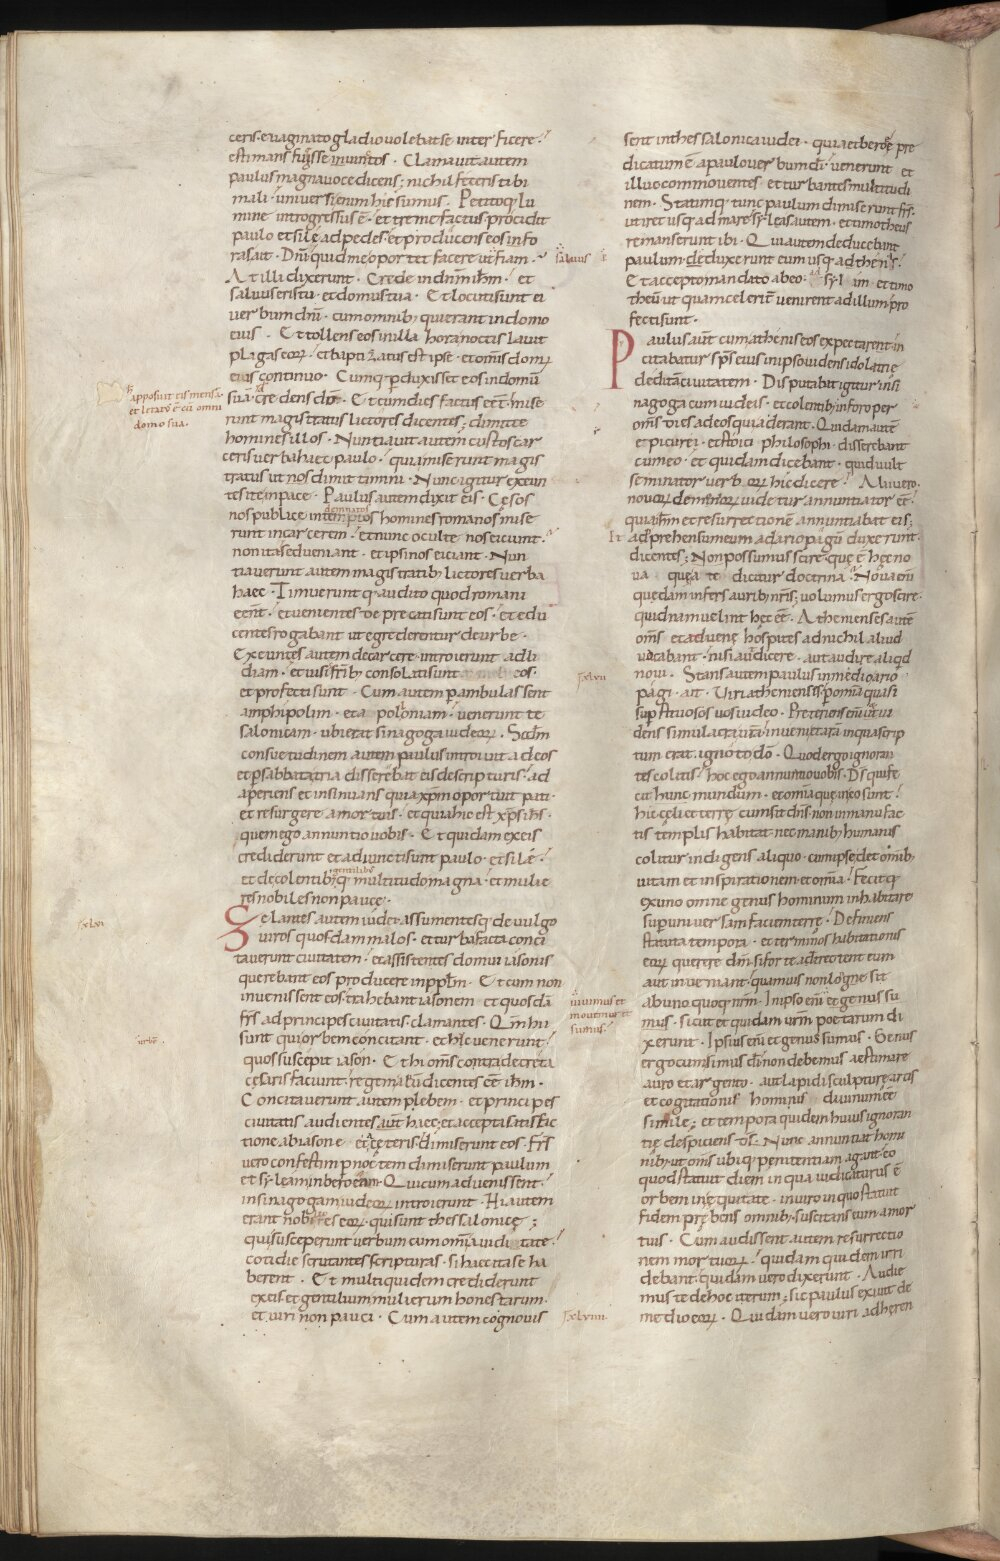 ceris· euaginato gladio uolebat se interficere·
estimans fuisse inuinctos · Clamauit autem
paulus magna uoce dicens; nichil feceris tibi
mali· uniuersi enim hic sumus · Petitoq; lu
mine introgressus ē· et tremefactus procidit
paulo et silę ad pedes· et producens eos info
ras ait · Dn̄i quid me oportet facere ut fiam·
At illi dixerunt · Crede in dn̄m ihm̄· et
saluus eris tu · et domus tua · Et locuti sunt ei
uerbum dn̄i · cum omnib; qui erant in domo
eius · Et tollens eos in illa hora noctis lauit
plagas eoꝝ · et baptizatus est ipse · et om̄s domꝰ
eius continuo · Cumq; pduxisset eos in domū
suā credens dō · Et cum dies factus eēt· mise
runt magistratus lictores dicentes; dimitte
homines illos · Nuntiauit autem custos car
ceris uerba haec paulo · quia miserunt magis
tratus ut nos dimittamini · Nunc igitur exeun
tes ite in pace · Paulus autem dixit eis · Cęsos
nos publice indemnatos homines romanos mise
runt in carcerem · et nunc occulte nos eiciunt·
non ita sed ueniant · et ipsi nos eiciant · Nun
tiauerunt autem magistratib; lictores uerba
haec · Timuerunt q; audito quod romani
eēnt· et uenientes deprecati sunt eos · et edu
centes rogabant ut egrederentur de urbe·
Exeuntes autem de carcere introierunt ad li
diam· et uisis frīb; consolati sunt eos·
et profecti sunt · Cum autem pambulassent
amphipolim · et apoloniam· uenerunt te
salonicam· ubi erat sinagoga iudeoꝝ · Scdm̄
consuetudinem autem paulus introiuit ad eos
et p sabbata tria disserebat eis de scripturis· ad
aperiens et insinuans quia xp̄m oportuit pati·
et resurgere a mortuis · et quia hic est xp̄s ihs̄·
quem ego annuntio uobis · Et quidam ex eis
crediderunt et adiuncti sunt paulo · et silę·
et de colentib; gentilib;q; multitudo magna· et mulie
res nobiles non paucę·
Zelantes autem iudei· assumentesq; de uulgo
uiros quosdam malos· et turba facta conci
tauerunt ciuitatem · et assistentes domui iasonis
querebant eos producere in pplm̄ · Et cum non
inuenissent eos· trahebant iasonem et quosdā
frs̄ ad principes ciuitatis· clamantes · Qm̄ hii
sunt qui orbem concitant · et huc uenerunt·
quos suscepit iason · Et hi om̄s contra decreta
cęsaris faciunt· regem aliū dicentes eē ihm̄·
Concitauerunt autem plebem · et principes
ciuitatis audientes haec· et accepta satisfac
tione ab iasone· et cęteris· dimiserunt eos · Frs̄
uero confestim p noctem dimiserunt paulum
et syleam in beroeam· Qui cum aduenissent·
in sinagogam iudeoꝝ introierunt · Hi autem
erant nobiliores eoꝝ qui sunt thessalonicę;
qui susceperunt uerbum cum om̄i auiditate·
cotidie scrutantes scripturas· si haec ita se ha
berent · Et multi quidem crediderunt
ex eis· et gentilium mulierum honestarum·
et uiri non pauci · Cum autem cognouis
sent in thessalonica iudei · quia et beroę pre
dicatum ē a paulo uerbum di· uenerunt et
illuc commouentes · et turbantes multitudi
nem · Statimq; tunc paulum dimiserunt frs̄·
ut iret usq; ad mare· syleas autem · et timotheus
remanserunt ibi · Qui autem deducebant
paulum· deduxerunt eum usq; ad athenas·
Et accepto mandato ab eo · ad sylam · et timo
theum ut quam celerit̄ uenirent ad illum· pro
fecti sunt·
Paulus aut̄ cum athenis eos expectaret· in
citabatur sp̄s eius in ipso uidens idolatrię
deditā ciuitatem · Disputabat igitur in si
nagoga cum iudeis · et colentib; in foro per
om̄s dies ad eos qui aderant · Quidam autē
epicurei · et stoici philosophi· disserebant
cum eo · et quidam dicebant · quid uult
seminator uerboꝝ hic dicere· Alii uero·
nouoꝝ demonioꝝ uidetur annuntiator eē·
quia ihm̄ et resurrectionē annuntiabat eis;
It adprehensum eum ad ario pagū duxerunt·
dicentes; Non possumus scire· quę ē hęc no
ua quę a te dicitur doctrina· Noua enī
quędam infers aurib; nr̄is; uolumus ergo scire·
quidnam uelint hęc eē · Athenienses autē
om̄s et aduenę hospites ad nichil aliud
uacabant· nisi aut dicere · aut audire aliqd
noui · Stans autem paulus in medio ario
pagi · ait · Viri athenienses· p om̄ia quasi
supstitiosos uos uideo · Preteriens eni et ui
dens simulacra ura· inueni et aram in qua scrip
tum erat· ignoto dō · Quod ergo ignoran
tes colitis· hoc ego annuntio uobis · Ds̄ qui fe
cit hunc mundum · et omia quę in eo sunt·
hic cęli et terrę cum sit dn̄s· non in manu fac
tis templis habitat· nec manib; humanis
colitur indigens aliquo · cum ipse det omīb;
uitam et inspirationem et om̄ia · Fecitq;
ex uno omne genus hominum inhabitare
sup uniuersam faciem terrę · Definiens
statuta tempora · et terminos habitationis
eoꝝ querere dm̄ si forte adtrectent eum
aut inueniant· quamuis non longe sit
ab uno quoq; nr̄m · In ipso eni et genus su
mus · sicut et quidam urm̄ poetarum di
xerunt · Ipsius eni et genus sumus · Genus
ergo cum simus di· non debemus aestimare
auro et argento · aut lapidi sculpturę artis
et cogitationis hominis diuinum eē
simile; et tempora quidem huius ignoran
tię despiciens ds̄· Nunc annuntiat homi
nib; ut om̄s ubiq; penitentiam agant· eo
quod statuit diem in qua iudicaturus ē
orbem in ęquitate · in uiro in quo statuit
fidem prębens omnib; suscitans eum a mor
tuis · Cum audissent autem resurrectio
nem mortuoꝝ· quidam quidem irri
debant· quidam uero dixerunt · Audie
mus te de hoc iterum; sic paulus exiuit de
medio eoꝝ · Quidam uero uiri adheren
saluus
apposuit eis mensā
et letatꝰ ē cū omni
domo sua·
xlvi
urbē
xlvii
uiuimus et
mouemur et
sumus·
xlviii